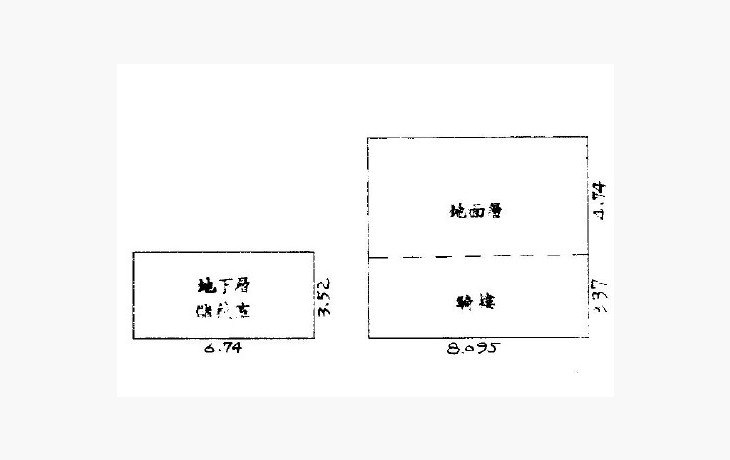 地下層
儲藏室
3.52
6.74
地面層
4.74
騎樓
3.37
8.095